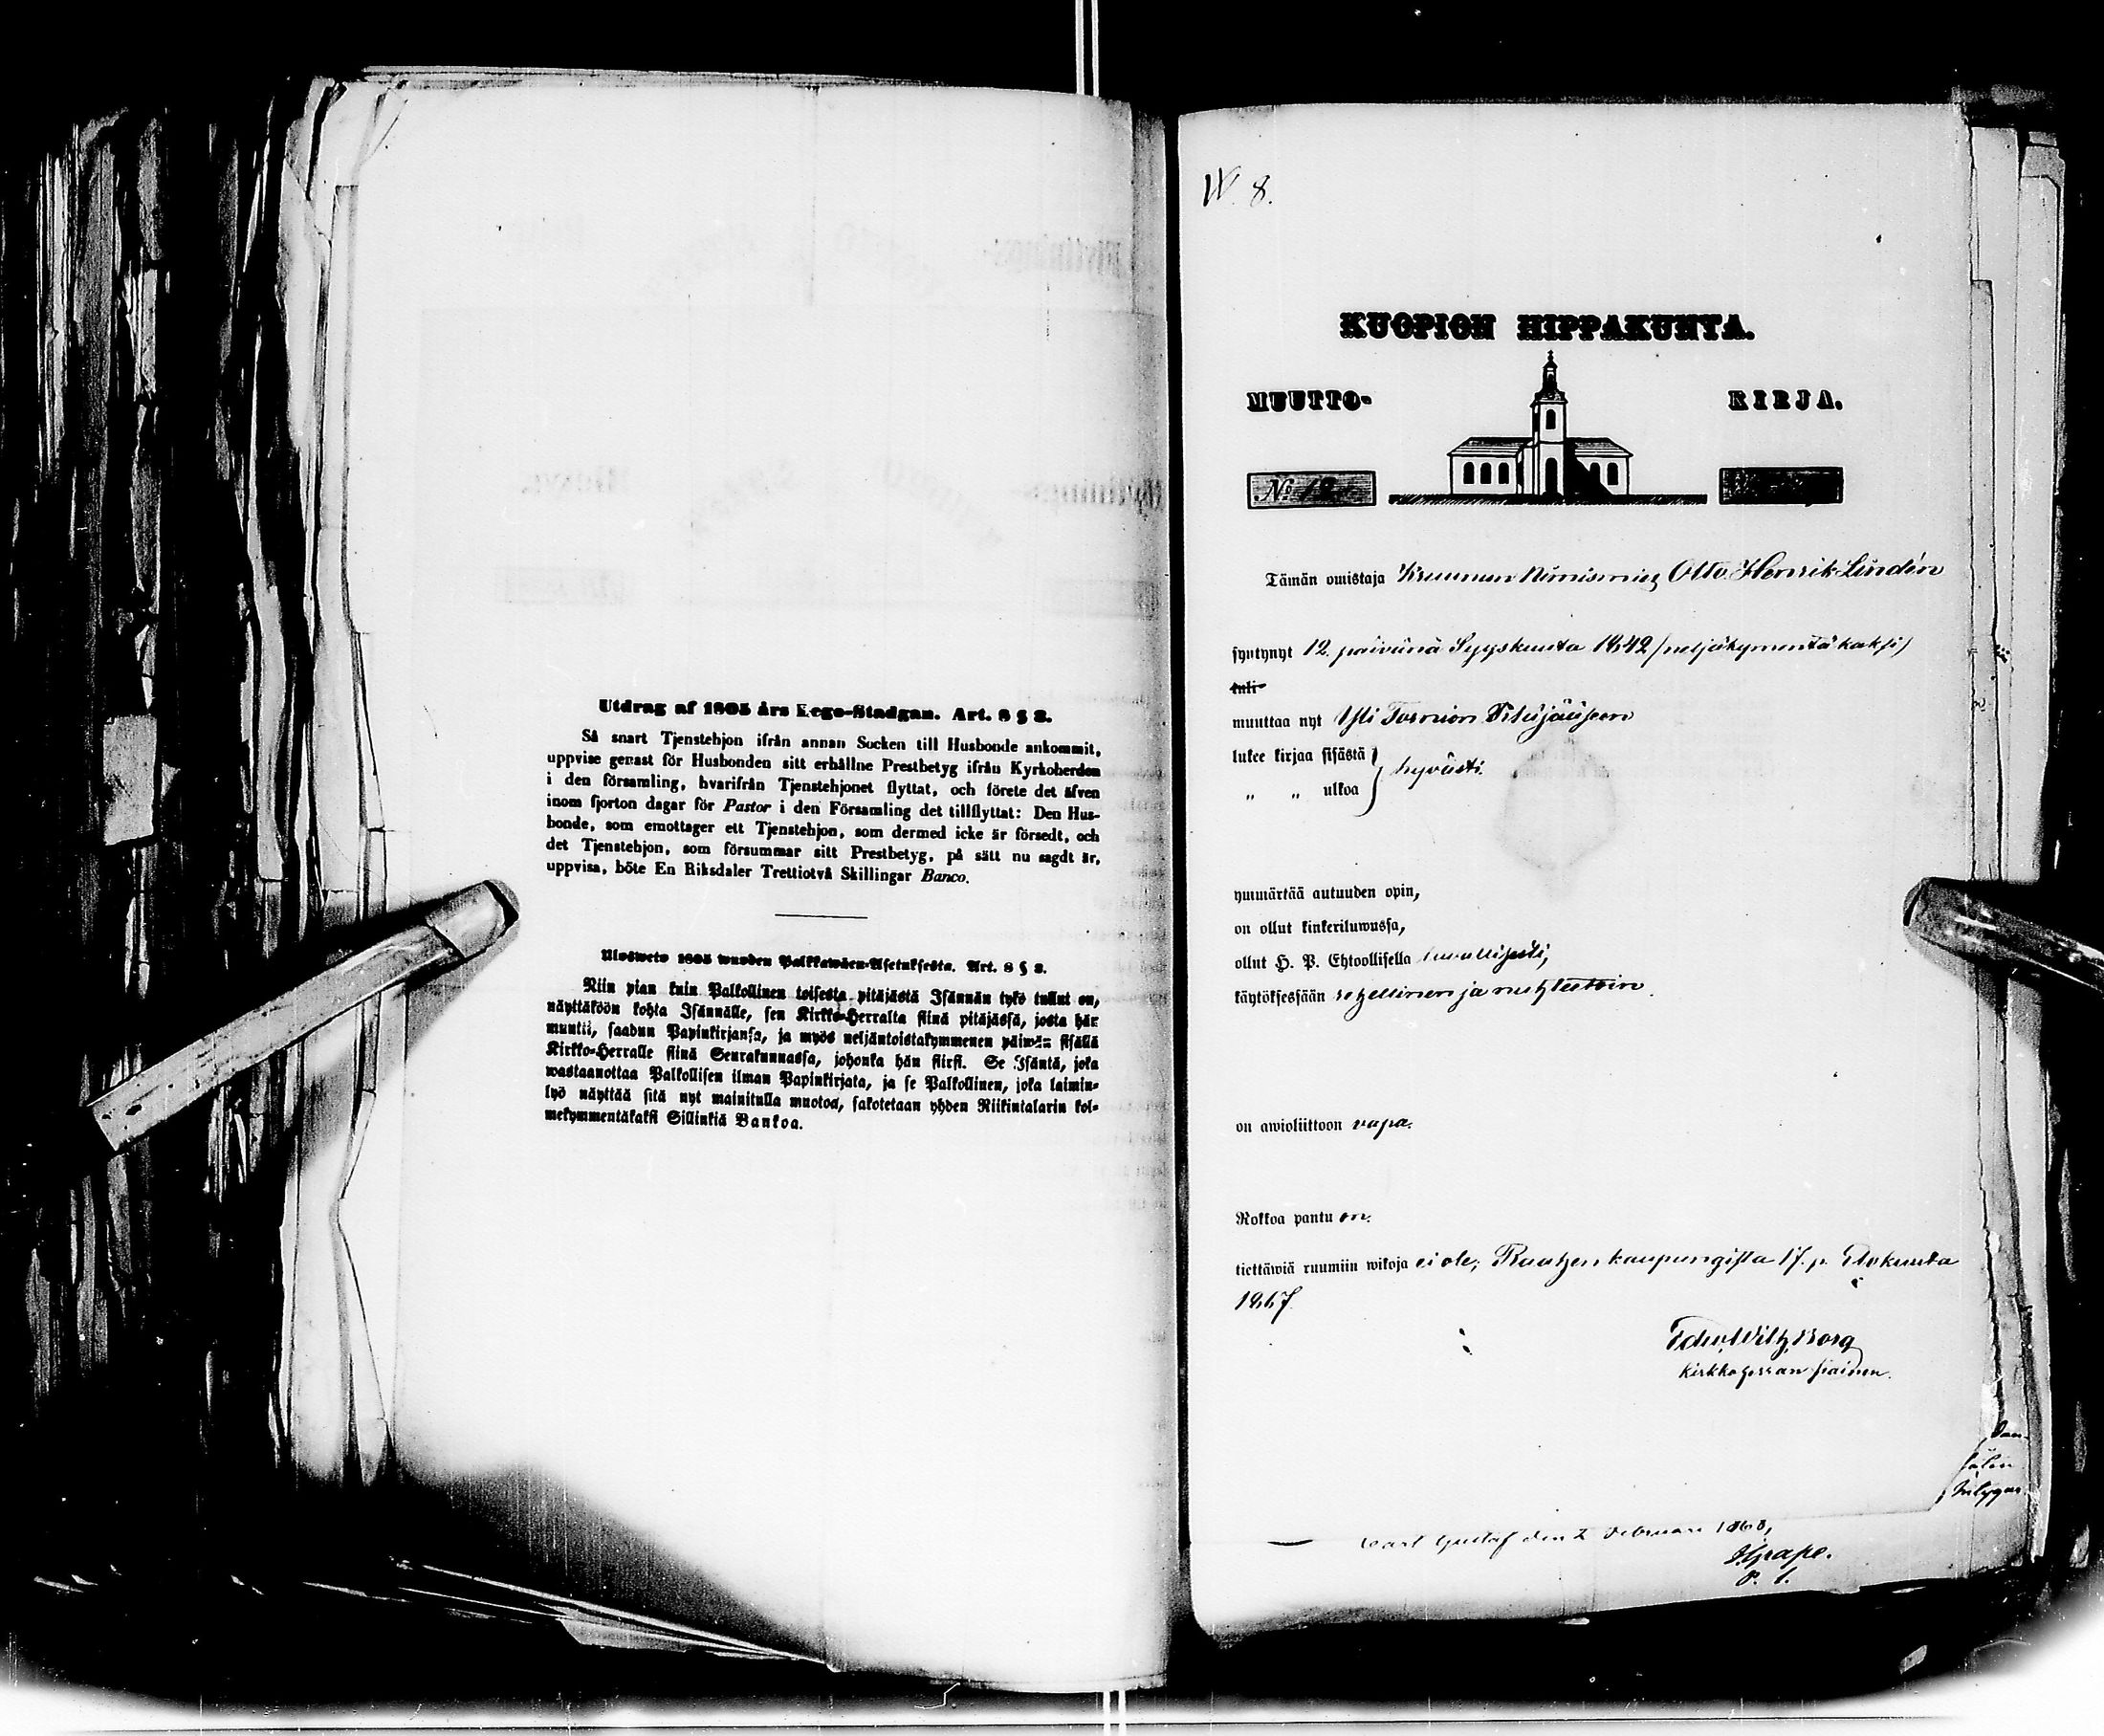 Utdrag af 1805 års Lego-Stadgan. Art. 8 § 2.
Så snart Tjenstehjon ifrån annan Socken till Husbonde ankommit,
uppvise genast för Husbonden sitt erhållne Prestbetyg ifrån Kyrkoherden
i den församling, hvarifrån Tjenstehjonet flyttat, och förete det äfven
inom fjorton dagar för Pastor i den Församling det tillflyttat: Den Hus-
bonde, som emottager ett Tjenstehjon, som dermed icke är försedt, och
det Tjenstehjon, som försummar sitt Prestbetyg, på sätt nu sagdt är,
uppvisa, böte En Riksdaler Trettiotvå Skillingar Banco.
Uloswето 1805 wuoden Palkkawäen-Asetuksesta. Art. 8 § 2.
Niin pian kuin Palkollinen toisesta pitäjästä Isännän tykö tullut on,
näyttäköön kohta Isännälle, sen Kirkko-Herralta siinä pitäjässä, josta hän
muutti, saadun Papinkirjansa, ja myös neljäntoistakymmenen päiwän sisällä
Kirkko-Herralle siinä Seurakunnassa, johonka hän siirsi. Se Isäntä, joka
wastaanottaa Palkollisen ilman Papinkirjata, ja se Palkollinen, joka laimin-
lyö näyttää sitä nyt mainitulla muotoa, sakotetaan yhden Riikintalarin kol-
mekymmentäkaksi Sillinkiä Bankoa.
W. 8.
KUOPION HIPPAKUNTA.
MUUTTO- KIRJA.
No 12
Tämän omistaja Kruunun Nimismies Otto Henrik Lindén
syntynyt 12. päivänä Syyskuuta 1842 /neljäkymmentä kaksi/
tuli
muuttaa nyt Yli Tornion Pitäjäsen
lukee kirjaa sisästä } hyvästi.
„ „ ulkoa
ymmärtää autuuden opin,
on ollut kinkeriluwussa,
ollut H. P. Ehtoollisella luvallisesti,
käytöksessään rehellinen ja nuhteetoin.
on awioliittoon vapa.
Rokkoa pantu on.
tiettäwiä ruumiin wikoja ei ole; Raahen kaupungista 17. p. Elokuuta
1867.
Edv. Wilh. Borg
Kirkkoherran siainen.
Carl Gustaf den 2 Februari 1868,
Grape.
P. l.